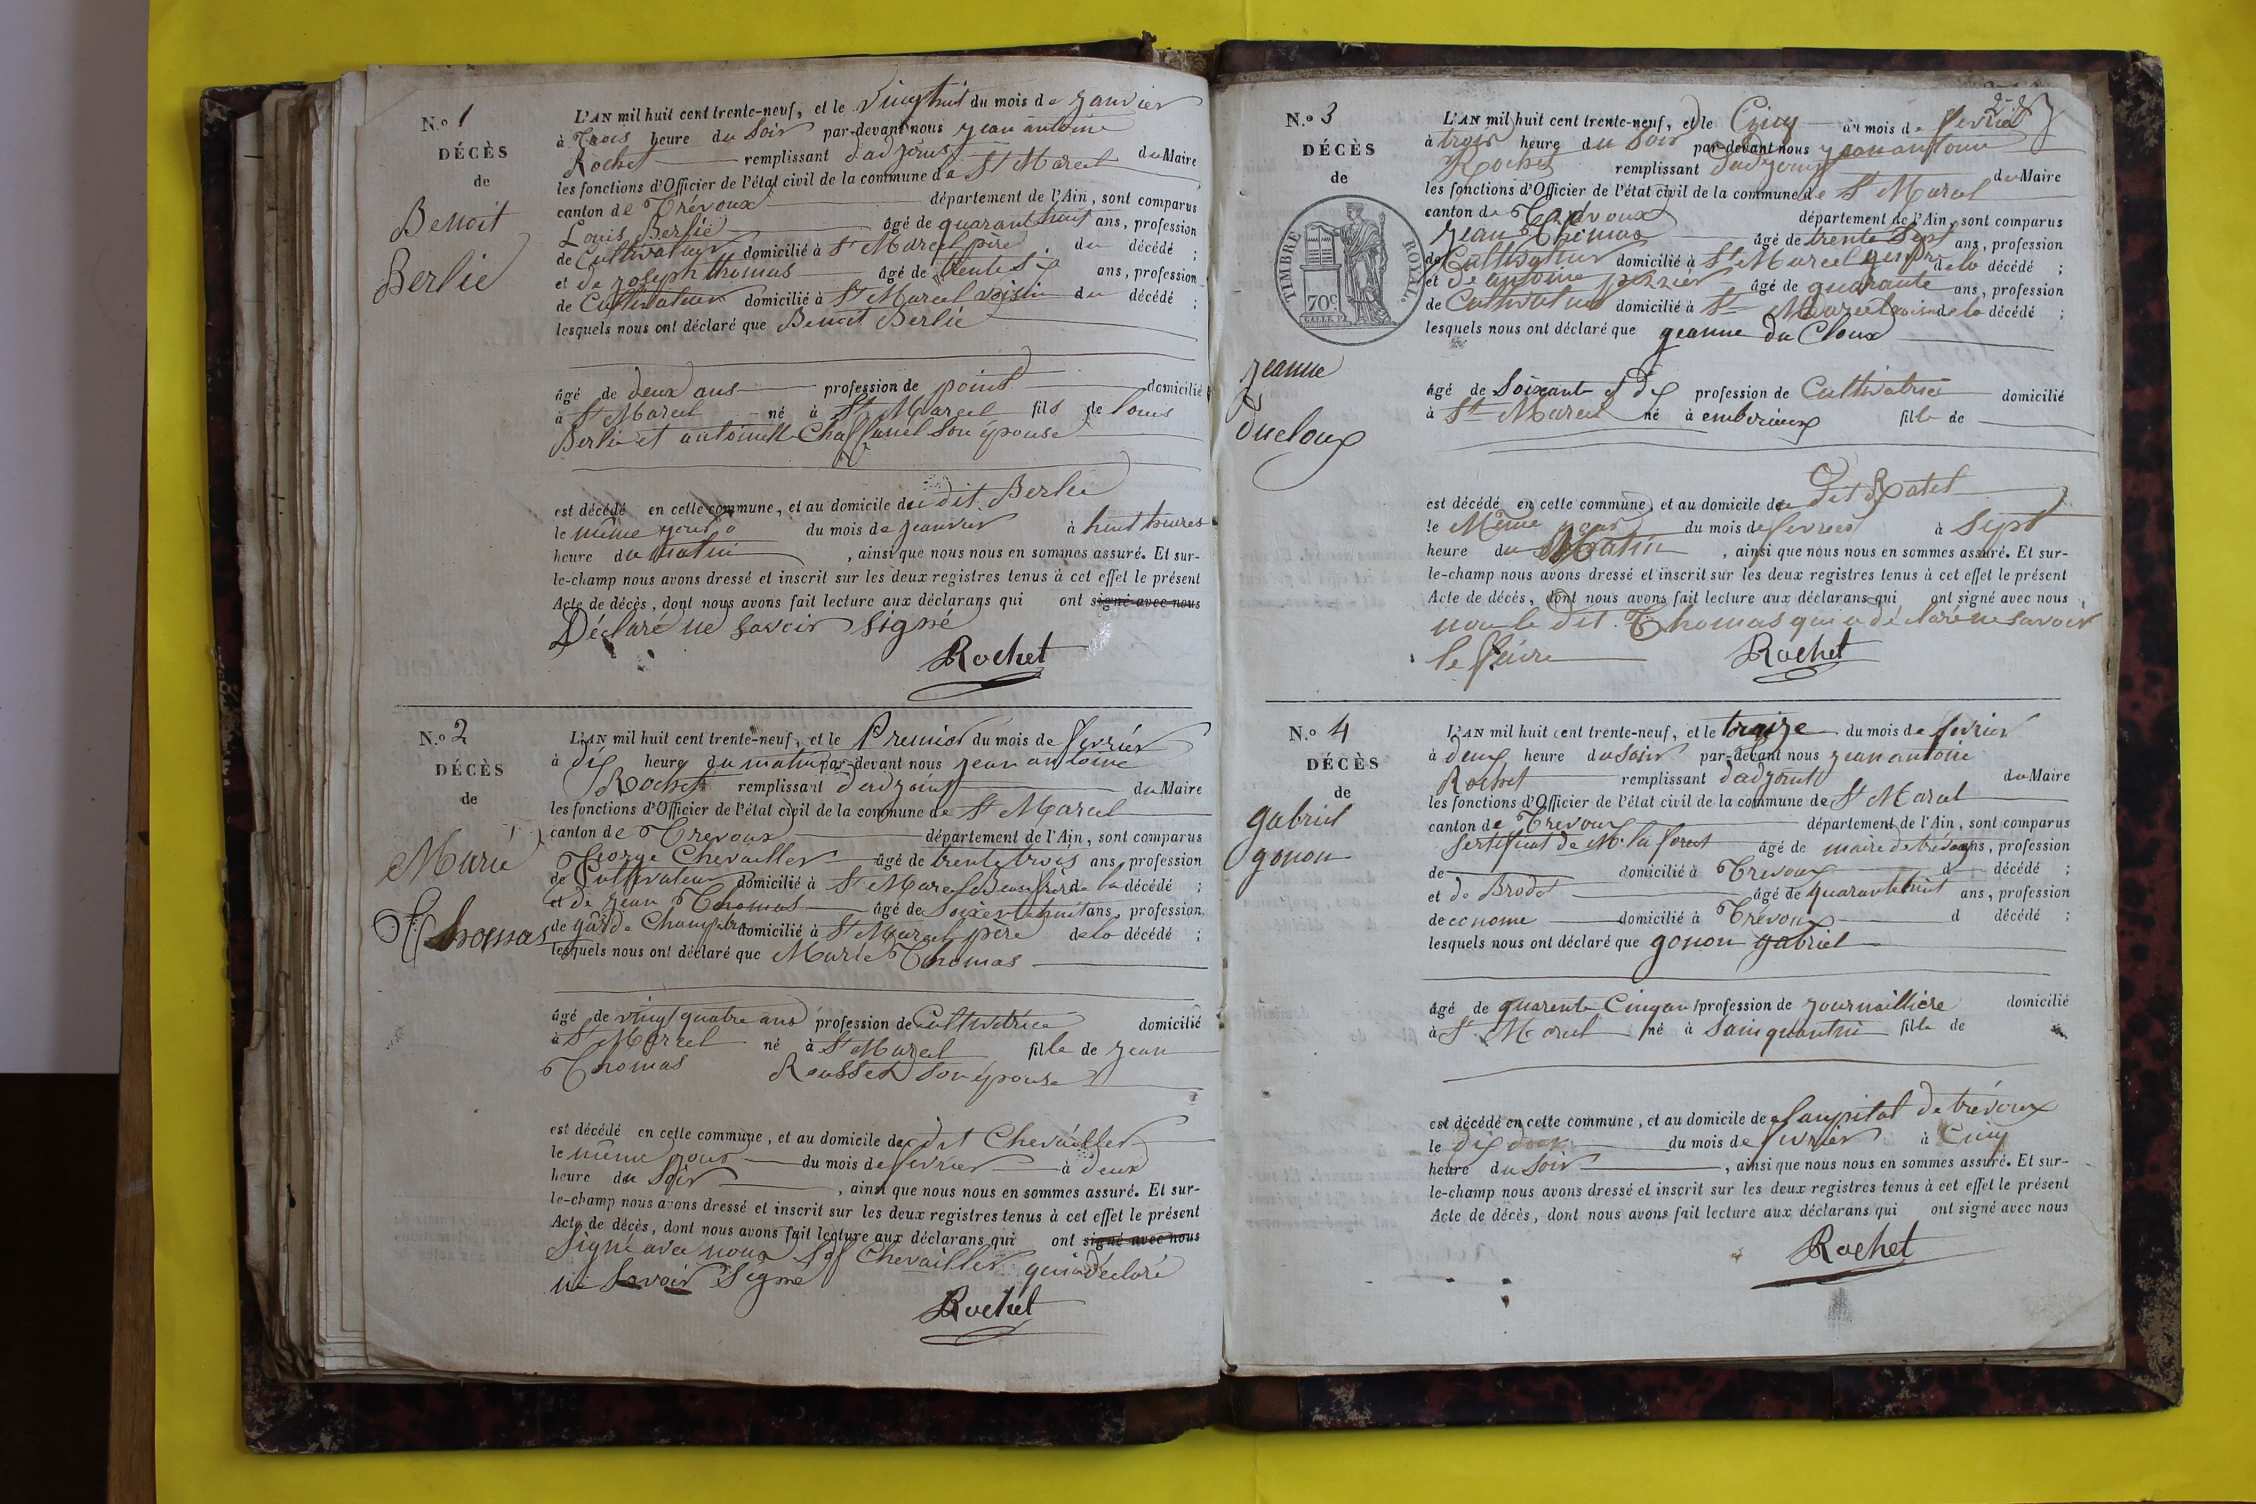 N.o 1
DÉCÈS
de
Benoit
Berlié
L'AN mil huit cent trente-neuf, et le vingt huit du mois de janvier
à trois heure du soir par-devant nous jean antoine
Rochet remplissant d'adjoint du Maire
les fonctions d'Officier de l'état civil de la commune de St Marcel
canton de Trévoux département de l'Ain, sont comparus
Louis Berlié âgé de quarant huit ans, profession
de Cultivateur domicilié à St Marcel père du décédé ;
et de joseph thomas âgé de trente six ans, profession
de Cultivateur domicilié à St Marcel voisin du décédé ;
lesquels nous ont déclaré que Benoit Berlié
âgé de deux ans profession de point domicilié
à St Marcel né à St Marcel fils de louis
Berlié et antoinette Chaffanel son épouse
est décédé en cette commune, et au domicile du dit Berlié
le même jour du mois de jeanvier à huit heures
heure du matin , ainsi que nous nous en sommes assuré. Et sur-
le-champ nous avons dressé et inscrit sur les deux registres tenus à cet effet le présent
Acte de décès, dont nous avons fait lecture aux déclarans qui ont signé avec nous
Déclaré ne savoir signé
Rochet
N.o 2
DÉCÈS
de
Marie
Thomas
L'AN mil huit cent trente-neuf, et le Premier du mois de fevrier
à dix heure du matin par-devant nous jean antoine
Rochet remplissant d'adjoint du Maire
les fonctions d'Officier de l'état civil de la commune de St Marcel
canton de Trevoux département de l'Ain, sont comparus
George Chevailler âgé de trente trois ans, profession
de Cultivateur domicilié à St Marcel Beau frère de la décédé ;
et de jean Thomas âgé de soixente huit ans, profession
de garde Champetre domicilié à St Marcel père de la décédé ;
lesquels nous ont déclaré que Marie Thomas
âgé de vingt quatre ans profession de Cultivatrice domicilié
à St Marcel né à St Marcel fille de jean
Thomas Rousset son épouse
est décédé en cette commune, et au domicile du dit Chevailler
le même jour du mois de fevrier à deux
heure du soir , ainsi que nous nous en sommes assuré. Et sur-
le-champ nous avons dressé et inscrit sur les deux registres tenus à cet effet le présent
Acte de décès, dont nous avons fait lecture aux déclarans qui ont signé avec nous
Signé avec nous Chevailler qui a déclaré
ne savoir signé
Rochet
N.o 3
DÉCÈS
de
TIMBRE ROYAL.
70c
jeanne
Ducloux
L'AN mil huit cent trente-neuf, et le Cinq du mois de fevrier
à trois heure du soir par-devant nous jean antoine
Rochet remplissant d'adjoint du Maire
les fonctions d'Officier de l'état civil de la commune de St Marcel
canton de Trévoux département de l'Ain, sont comparus
jean Thomas âgé de trente Sept ans, profession
de Cultivateur domicilié à St Marcel gendre de la décédé ;
et de antoine perrier âgé de quarante ans, profession
de Cultivateur domicilié à St Marcel voisin de la décédé ;
lesquels nous ont déclaré que jeanne du Cloux
âgé de Soixante et dix profession de Cultivatrice domicilié
à St Marcel né à emberieux fille de
est décédé en cette commune, et au domicile du dit Ratet
le Même jour du mois de fevrier à sept
heure du Matin , ainsi que nous nous en sommes assuré. Et sur-
le-champ nous avons dressé et inscrit sur les deux registres tenus à cet effet le présent
Acte de décès, dont nous avons fait lecture aux déclarans qui ont signé avec nous
non le dit Thomas qui a déclaré ne savoir
le faire
Rochet
N.o 4
DÉCÈS
de
gabriel
gonon
L'AN mil huit cent trente-neuf, et le traize du mois de fevrier
à deux heure du soir par-devant nous jean antoine
Rochet remplissant d'adjoint du Maire
les fonctions d'Officier de l'état civil de la commune de St Marcel
canton de Trevoux département de l'Ain, sont comparus
Sertificat de Mr la forest âgé de maire de trévoux ans, profession
de domicilié à Trevoux d décédé ;
et de Brodet âgé de quarante huit ans, profession
de econome domicilié à Trévoux d décédé ;
lesquels nous ont déclaré que gonon gabriel
âgé de quarente Cinq an profession de journaillière domicilié
à St Marcel né à Sainquantin fille de
est décédé en cette commune, et au domicile de l'aupital de trévoux
le dix du mois de fevrier à Cinq
heure du soir , ainsi que nous nous en sommes assuré. Et sur-
le-champ nous avons dressé et inscrit sur les deux registres tenus à cet effet le présent
Acte de décès, dont nous avons fait lecture aux déclarans qui ont signé avec nous
Rochet